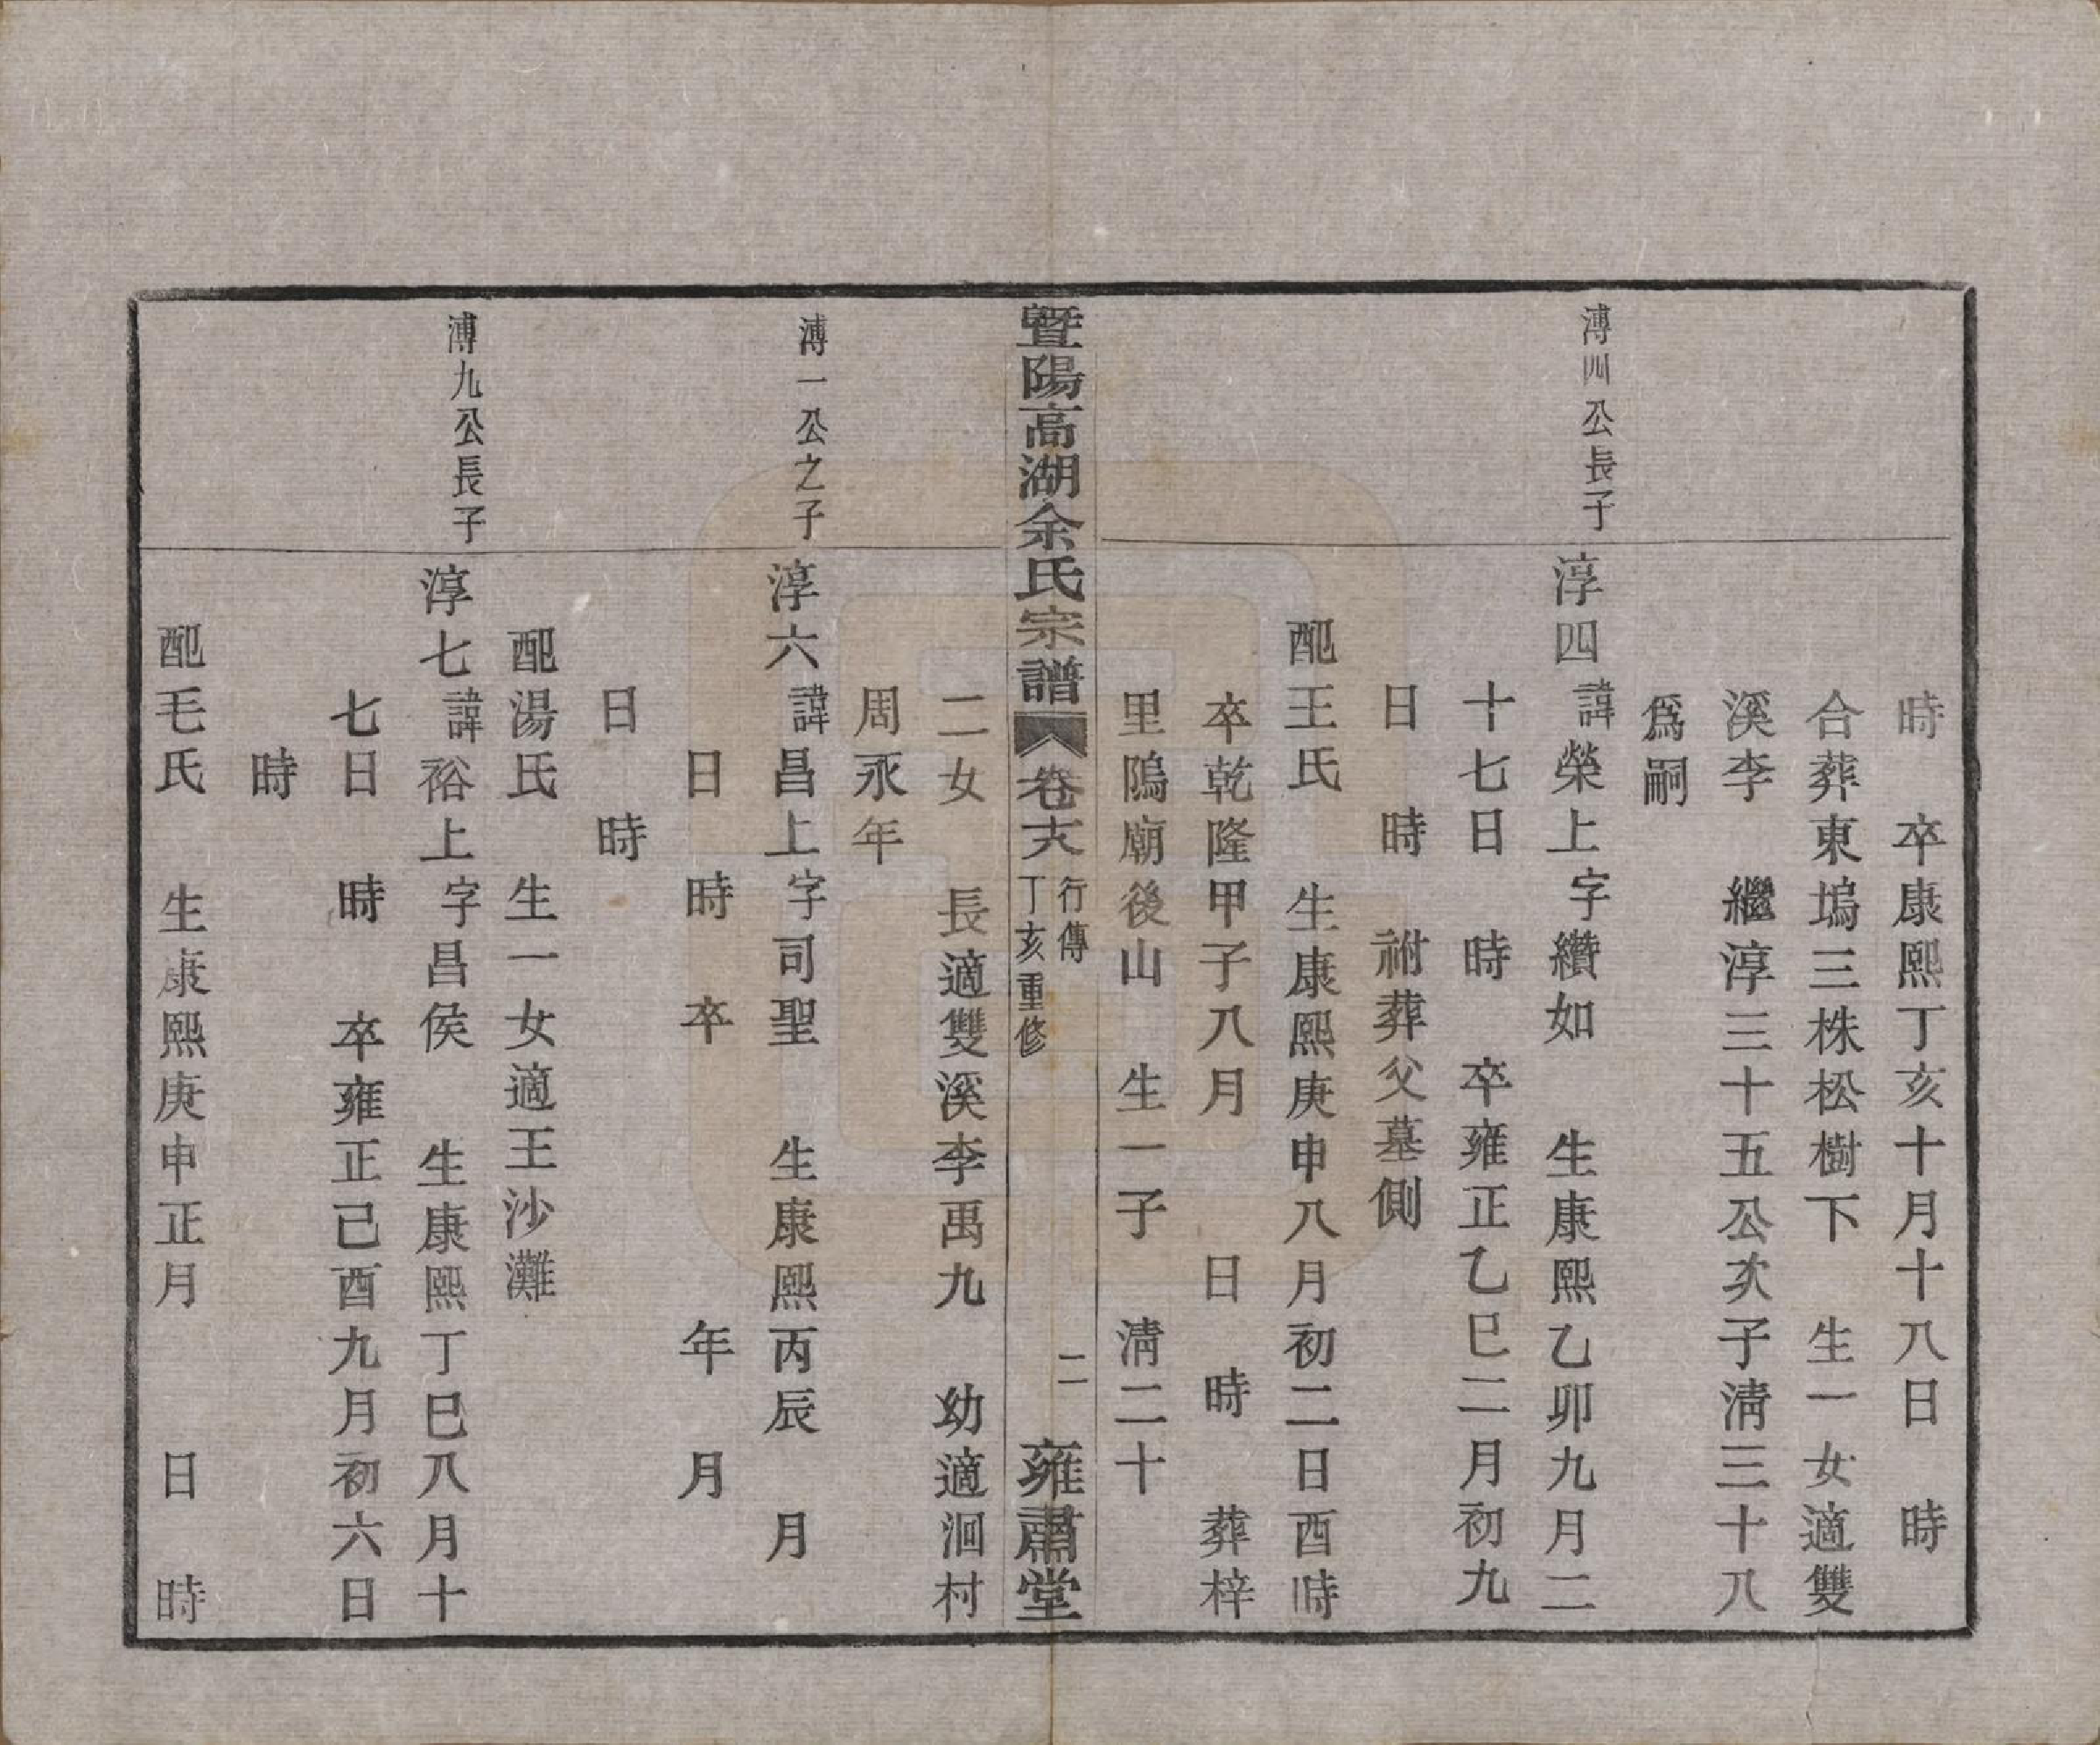 時　卒康熙丁亥十月十八日　時
合葬東塢三株松樹下　生一女適雙
溪李　繼淳三十五公次子淸三十八
爲嗣
溥四公長子
淳四諱榮上字纘如　生康熙乙卯九月二
十七日　時　卒雍正乙巳二月初九
日　時　祔葬父墓側
配王氏　生康熙庚申八月初二日酉時
卒乾隆甲子八月　　日　時　葬梓
里隖廟後山　生一子　淸二十
暨陽高湖余氏宗譜　卷十八　行傳　丁亥重修　二　雍肅堂
二女　長適雙溪李禹九　幼適洄村
周永年
溥一公之子
淳六諱昌上字司聖　生康熙丙辰　月
日　時　卒　　　　年　月
日　時
配湯氏　生一女適王沙灘
溥九公長子
淳七諱裕上字昌侯　生康熙丁巳八月十
七日　時　卒雍正己酉九月初六日
時
配毛氏　生康熙庚申正月　　日　時